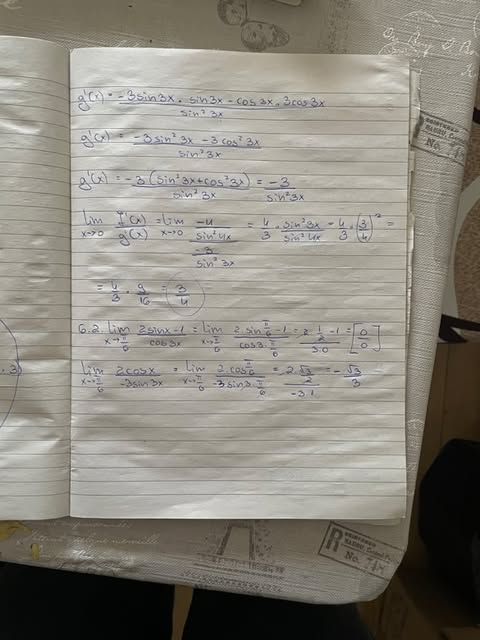 g'(x) = -3sin3x · sin3x - cos3x · 3cos3x / sin²3x
g'(x) = -3sin²3x - 3cos²3x / sin²3x
g'(x) = -3(sin²3x + cos²3x) / sin²3x = -3 / sin²3x
lim x→0 f'(x) / g'(x) = lim x→0 -4 / sin²4x / -3 / sin²3x = 4/3 · sin²3x / sin²4x = 4/3 · (3/4)² =
= 4/3 · 9/16 = 3/4
6.2. lim x→π/6 2sinx-1 / cos3x = lim x→π/6 2·sin π/6 -1 / cos3·π/6 = 2·1/2 -1 / 3·0 = [0/0]
lim x→π/6 2cosx / -3sin3x = lim x→π/6 2·cos π/6 / -3sin3·π/6 = 2·√3/2 / -3·1 = -√3/3
3)
REGISTERED
R
No.